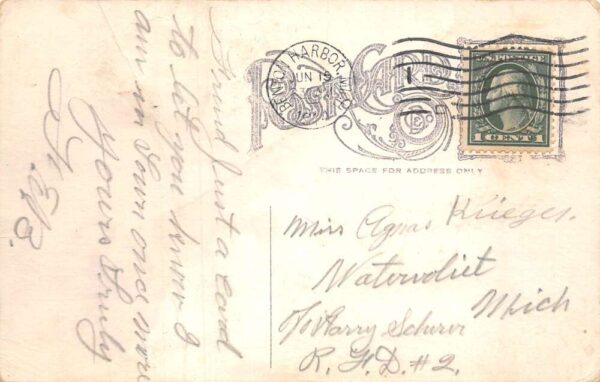 Friend Just a Card
to let you know I
am in town once more
Yours Truly
BENTON HARBOR, MICH.
JUN 19
Post Card
U.S. POSTAGE
1 CENT 1
THIS SPACE FOR ADDRESS ONLY
Miss Agnas Krieger.
Watervliet
Mich
c/o Harry Scherer
R. F. D. #2.